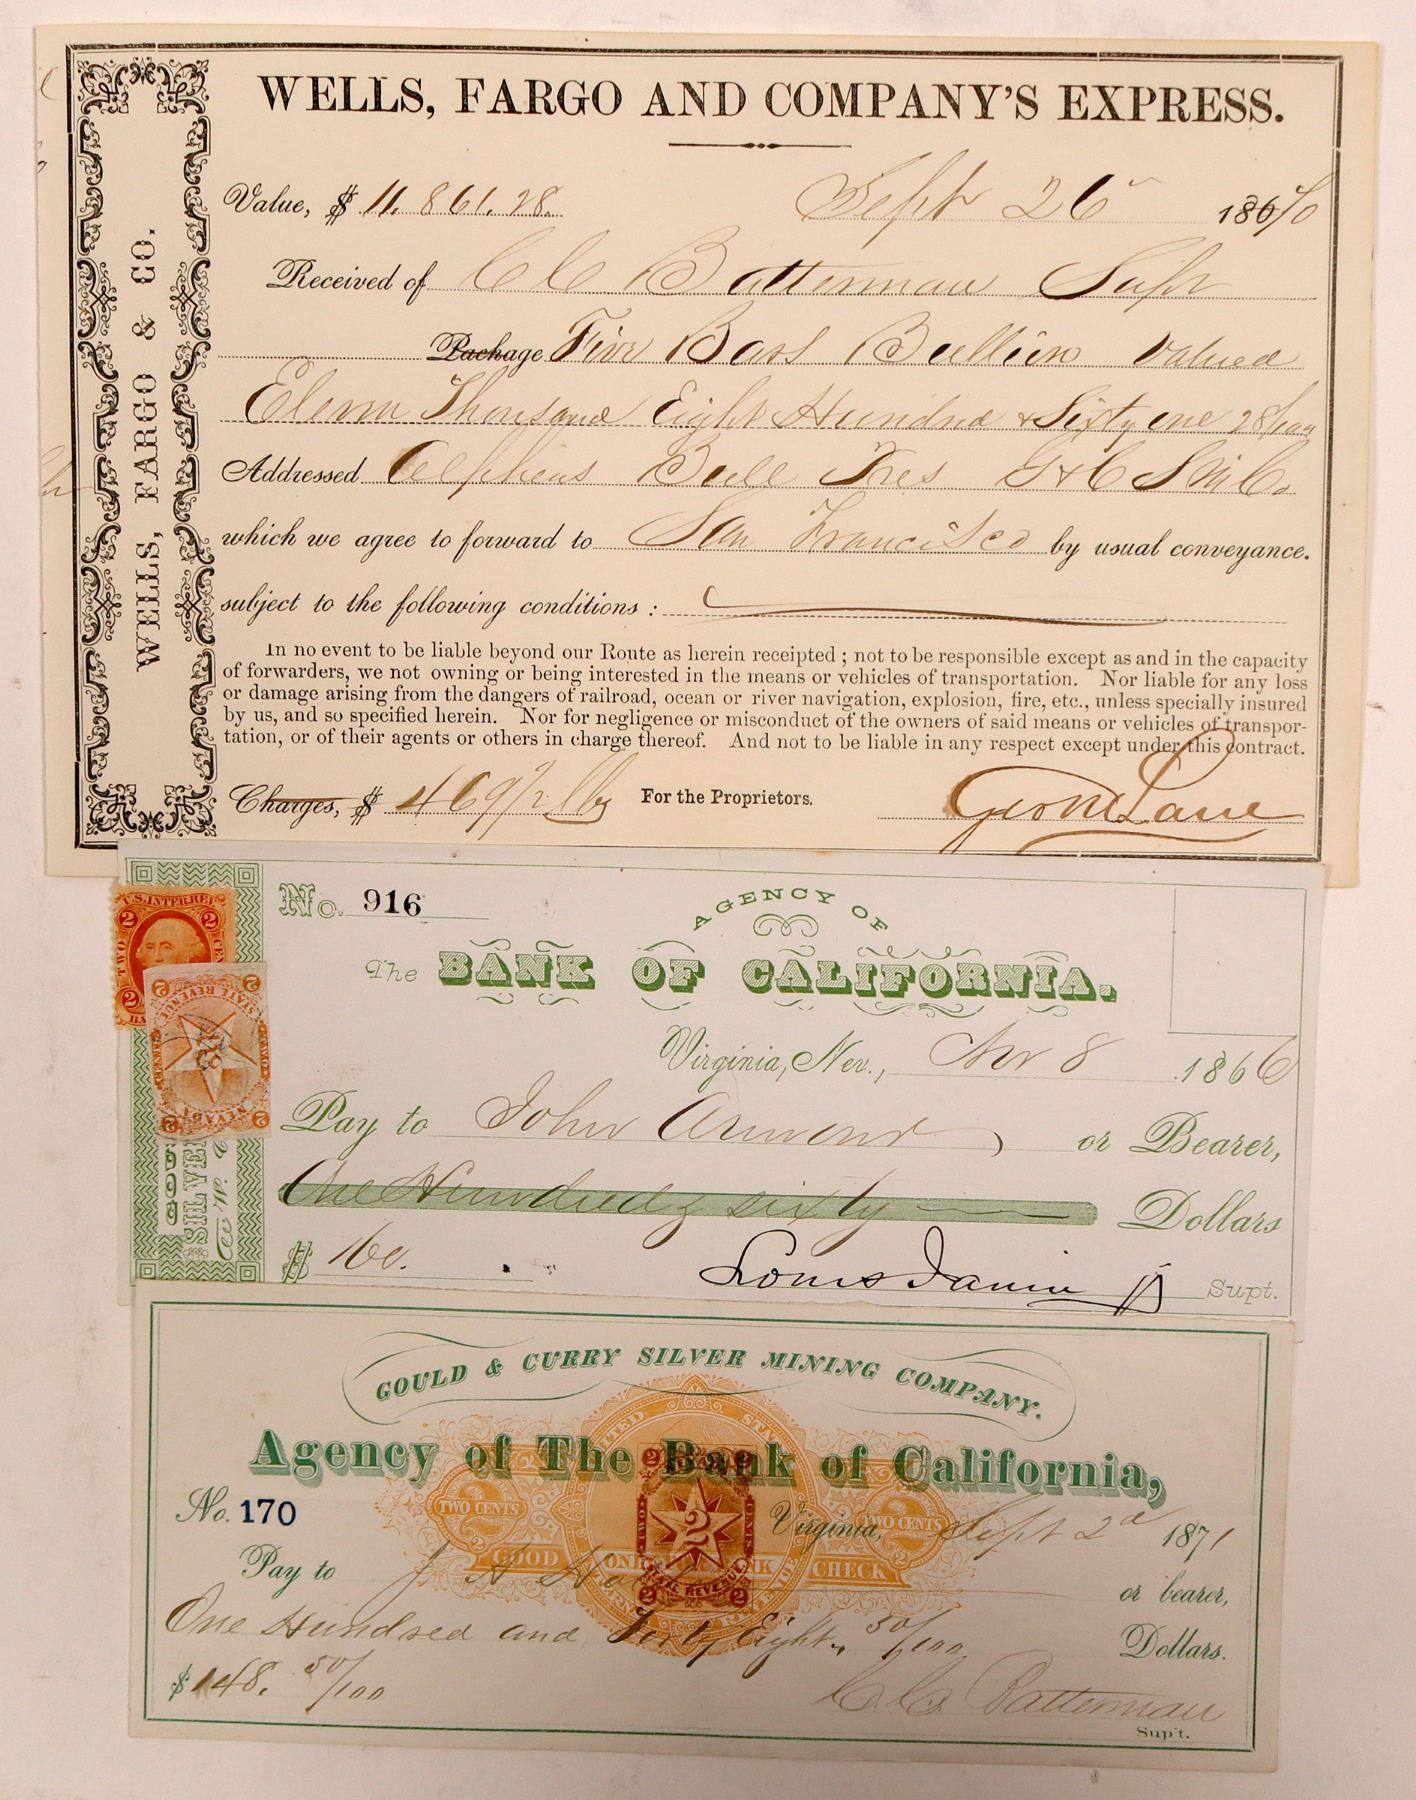 WELLS, FARGO & CO.
WELLS, FARGO AND COMPANY'S EXPRESS.
Value, $ 11.861.28. Sept 26 1870
Received of C C Batterman Supt
Package Five Bars Bullion Valued
Eleven Thousand Eight Hundred & Sixty one 28/100
Addressed Alpheus Bull Tres G & C S M Co.
which we agree to forward to San Francisco by usual conveyance.
subject to the following conditions :
In no event to be liable beyond our Route as herein receipted ; not to be responsible except as and in the capacity
of forwarders, we not owning or being interested in the means or vehicles of transportation. Nor liable for any loss
or damage arising from the dangers of railroad, ocean or river navigation, explosion, fire, etc., unless specially insured
by us, and so specified herein. Nor for negligence or misconduct of the owners of said means or vehicles of transpor-
tation, or of their agents or others in charge thereof. And not to be liable in any respect except under this contract.
Charges, $ 469 1/2 lbs For the Proprietors. Geo M Lane
U.S. INTER. REV.
2 2
TWO CENTS
2
STATE REVENUE
2 2
TWO CENTS
NEVADA
2 2
SILVER
No. 916
AGENCY OF
The BANK OF CALIFORNIA.
Virginia, Nev., Nov 8 1866
Pay to John or Bearer,
One Hundred & sixty Dollars
$ 160.
Louis Janin Jr Supt.
GOULD & CURRY SILVER MINING COMPANY.
Agency of The Bank of California,
No. 170 Virginia, Sept 2d 1871
UNITED STATES
INTERNAL REVENUE
TWO CENTS 2 TWO CENTS
GOOD ONLY BANK CHECK
2 2
TWO 2 CENTS
STATE REVENUE
2 2
Pay to J A or bearer,
One Hundred and Forty Eight 50/100 Dollars.
$ 148. 50/100
C. C. Batterman
Sup't.